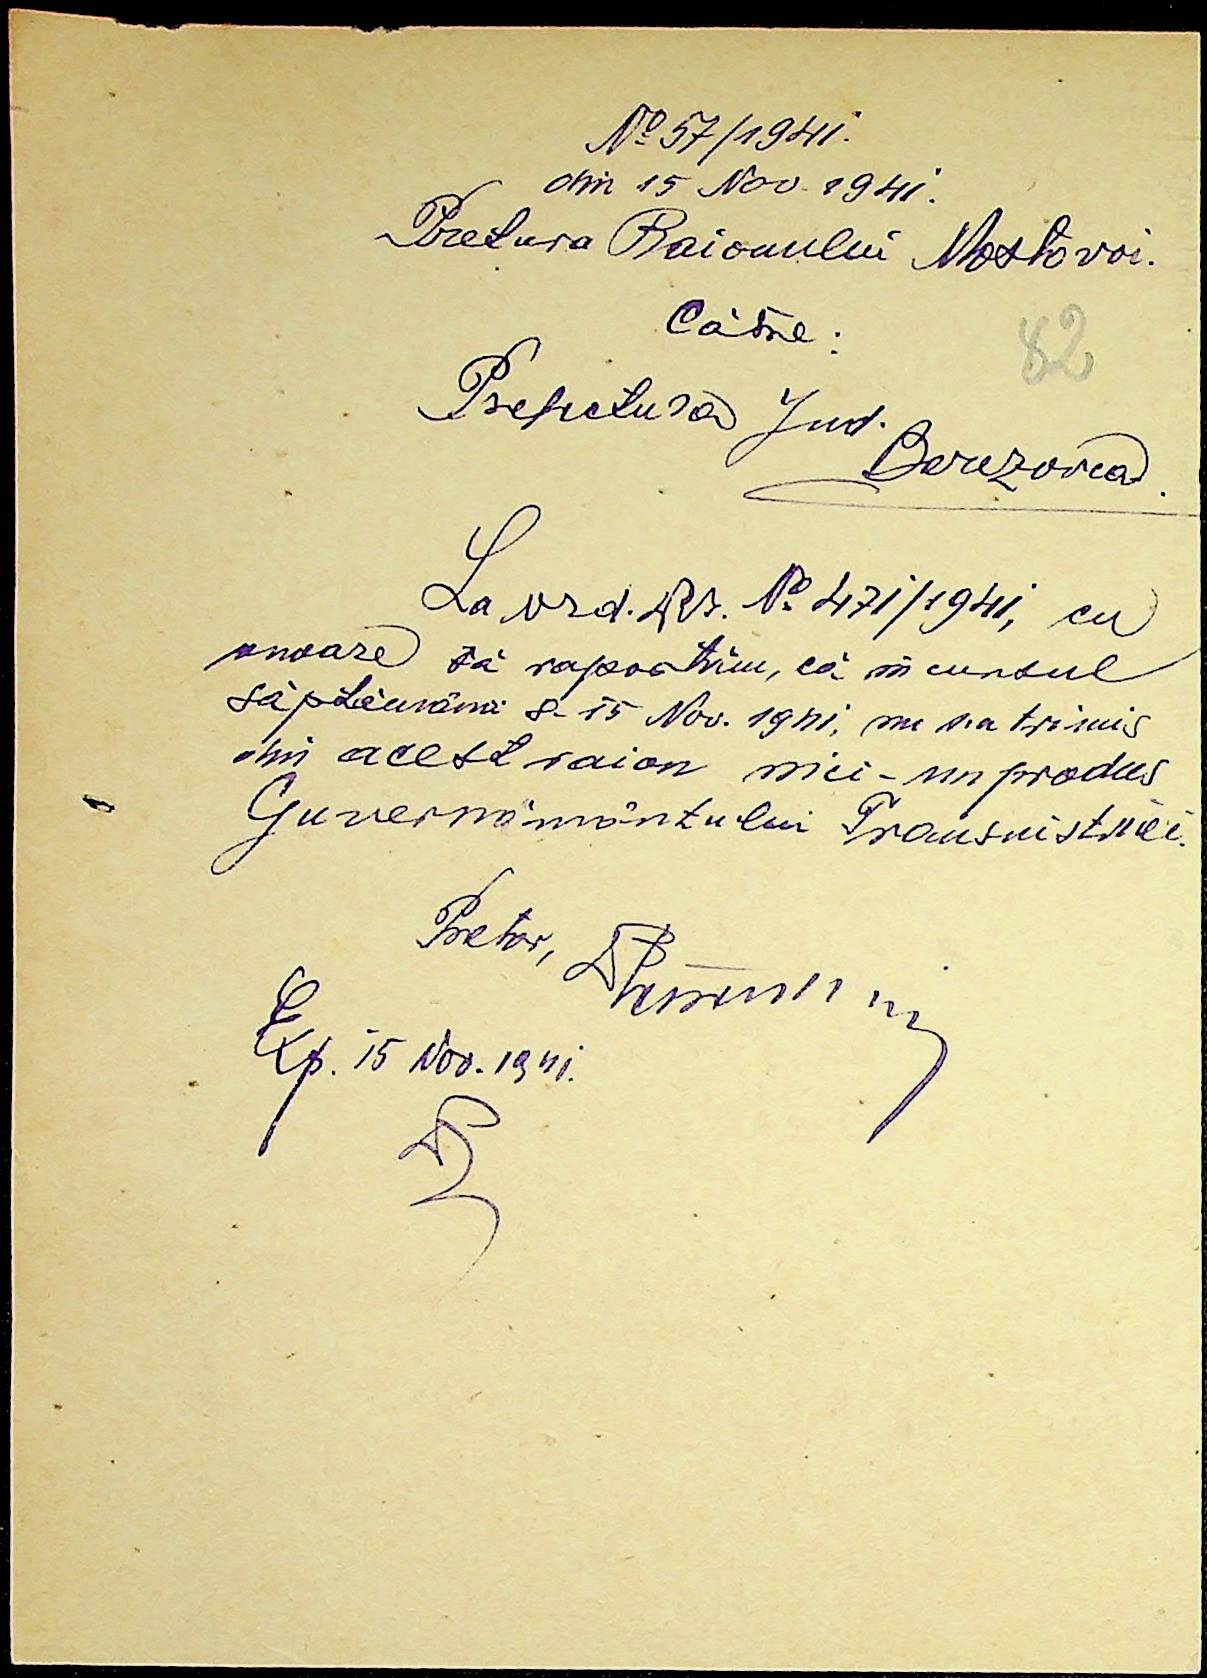 Nº 57/1941.
din 15 Nov. 1941.
Pretura Raionului Mostovoi.
Către:
82
Prefectura Jud.
Berezovca.
La ord. Dvs. Nº 471/1941, cu
onoare să raportăm, că în cursul
săptămânii 8-15 Nov. 1941, nu s'a trimis
din acest raion nici-un produs
Guvernământului Transnistriei.
Pretor,
Exp. 15 Nov. 1941.